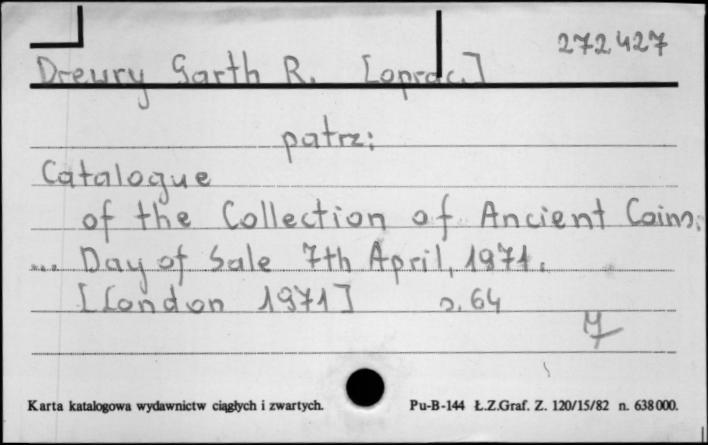 272427
Drewry Garth R. [oprac.]
patrz:
Catalogue
of the Collection of Ancient Coins.
... Day of Sale 7th April, 1971.
[London 1971] s. 64
Karta katalogowa wydawnictw ciągłych i zwartych. Pu-B-144 Ł.Z.Graf. Z. 120/15/82 n. 638000.